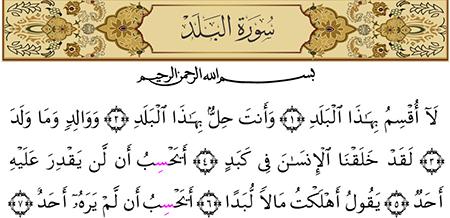 سُورَةُ البَلَدِ
بسم الله الرحمن الرحيم
لَآ أُقْسِمُ بِهَـٰذَا ٱلْبَلَدِ ﴿١﴾ وَأَنتَ حِلٌّۢ بِهَـٰذَا ٱلْبَلَدِ ﴿٢﴾ وَوَالِدٍ وَمَا وَلَدَ
﴿٣﴾ لَقَدْ خَلَقْنَا ٱلْإِنسَـٰنَ فِى كَبَدٍ ﴿٤﴾ أَيَحْسِبُ أَن لَّن يَقْدِرَ عَلَيْهِ
أَحَدٌ ﴿٥﴾ يَقُولُ أَهْلَكْتُ مَالًا لُّبَدًا ﴿٦﴾ أَيَحْسِبُ أَن لَّمْ يَرَهُۥٓ أَحَدٌ ﴿٧﴾